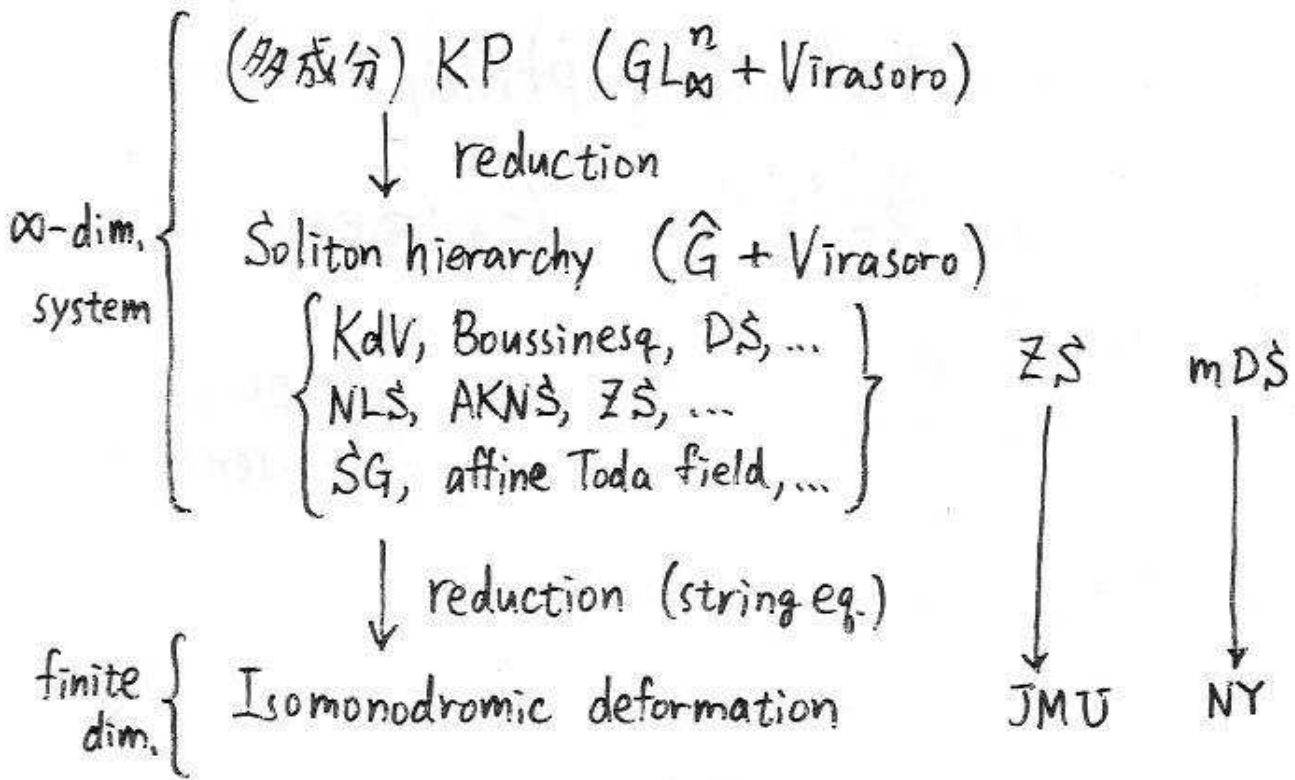 (多成分) KP (GL_∞^n + Virasoro)
reduction
∞-dim.
system
Soliton hierarchy (Ĝ + Virasoro)
KdV, Boussinesq, DS, ...
NLS, AKNS, ZS, ...
SG, affine Toda field, ...
ZS
mDS
reduction (string eq.)
finite
dim.
Isomonodromic deformation
JMU
NY